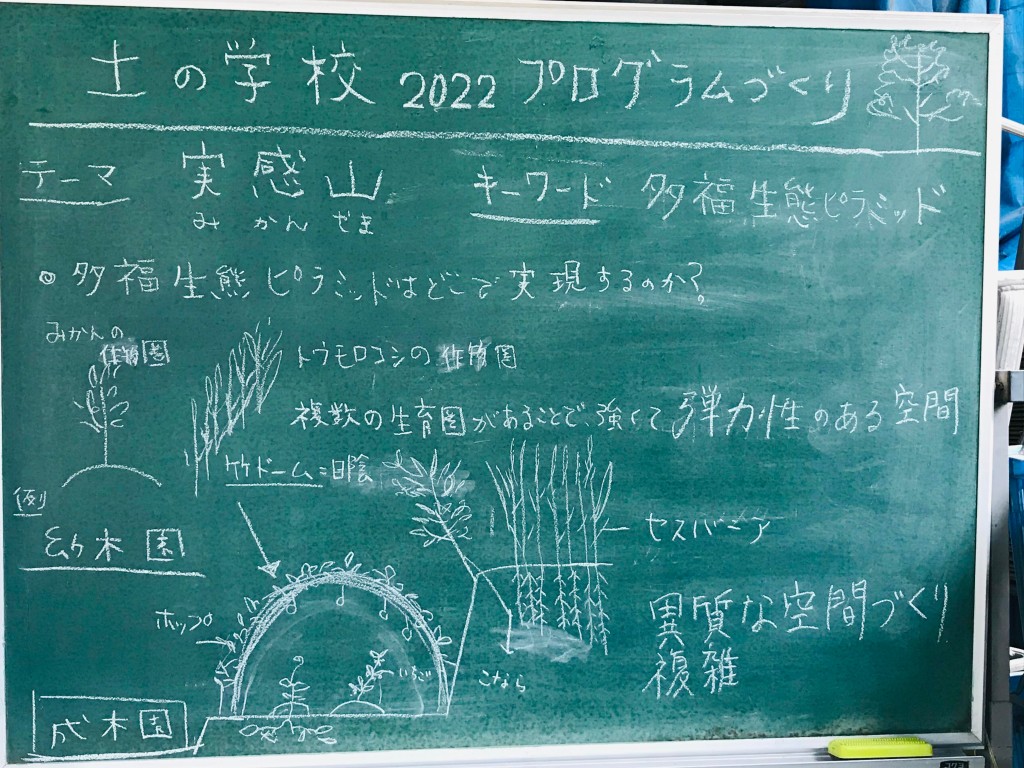 土の学校 2022 プログラムづくり
テーマ 実感山 キーワード 多福生態ピラミッド
みかんざま
◎ 多福生熊ピラミッドはどこで実現するのか?
みかんの
圏
トウモロコシの 圏
複数の生育圏があることで、強くて弾力性のある空間
竹ドーム=日陰
例
セスバニア
幼木園
ホップ
異質な空間づくり
複雑
いちご
こなら
成木園